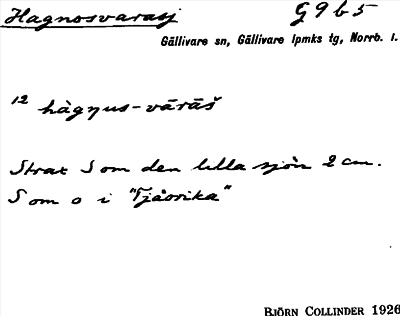 Hagnosvarasj G9b5
Gällivare sn, Gällivare lpmks tg, Norrb. l.
12 hàgŋus-vārāš
Strax S om den lilla sjön 2 cm.
S om o i "Tjåorika"
BJÖRN COLLINDER 1926